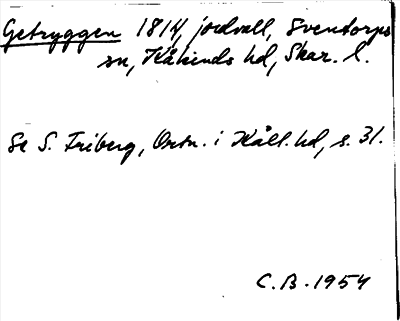 Getryggen 1814, jordvall, Sventorps
sn, Kåkinds hd, Skar. l.
Se S. Friberg, Ortn. i Kåll. hd, s. 31.
C.B. 1954